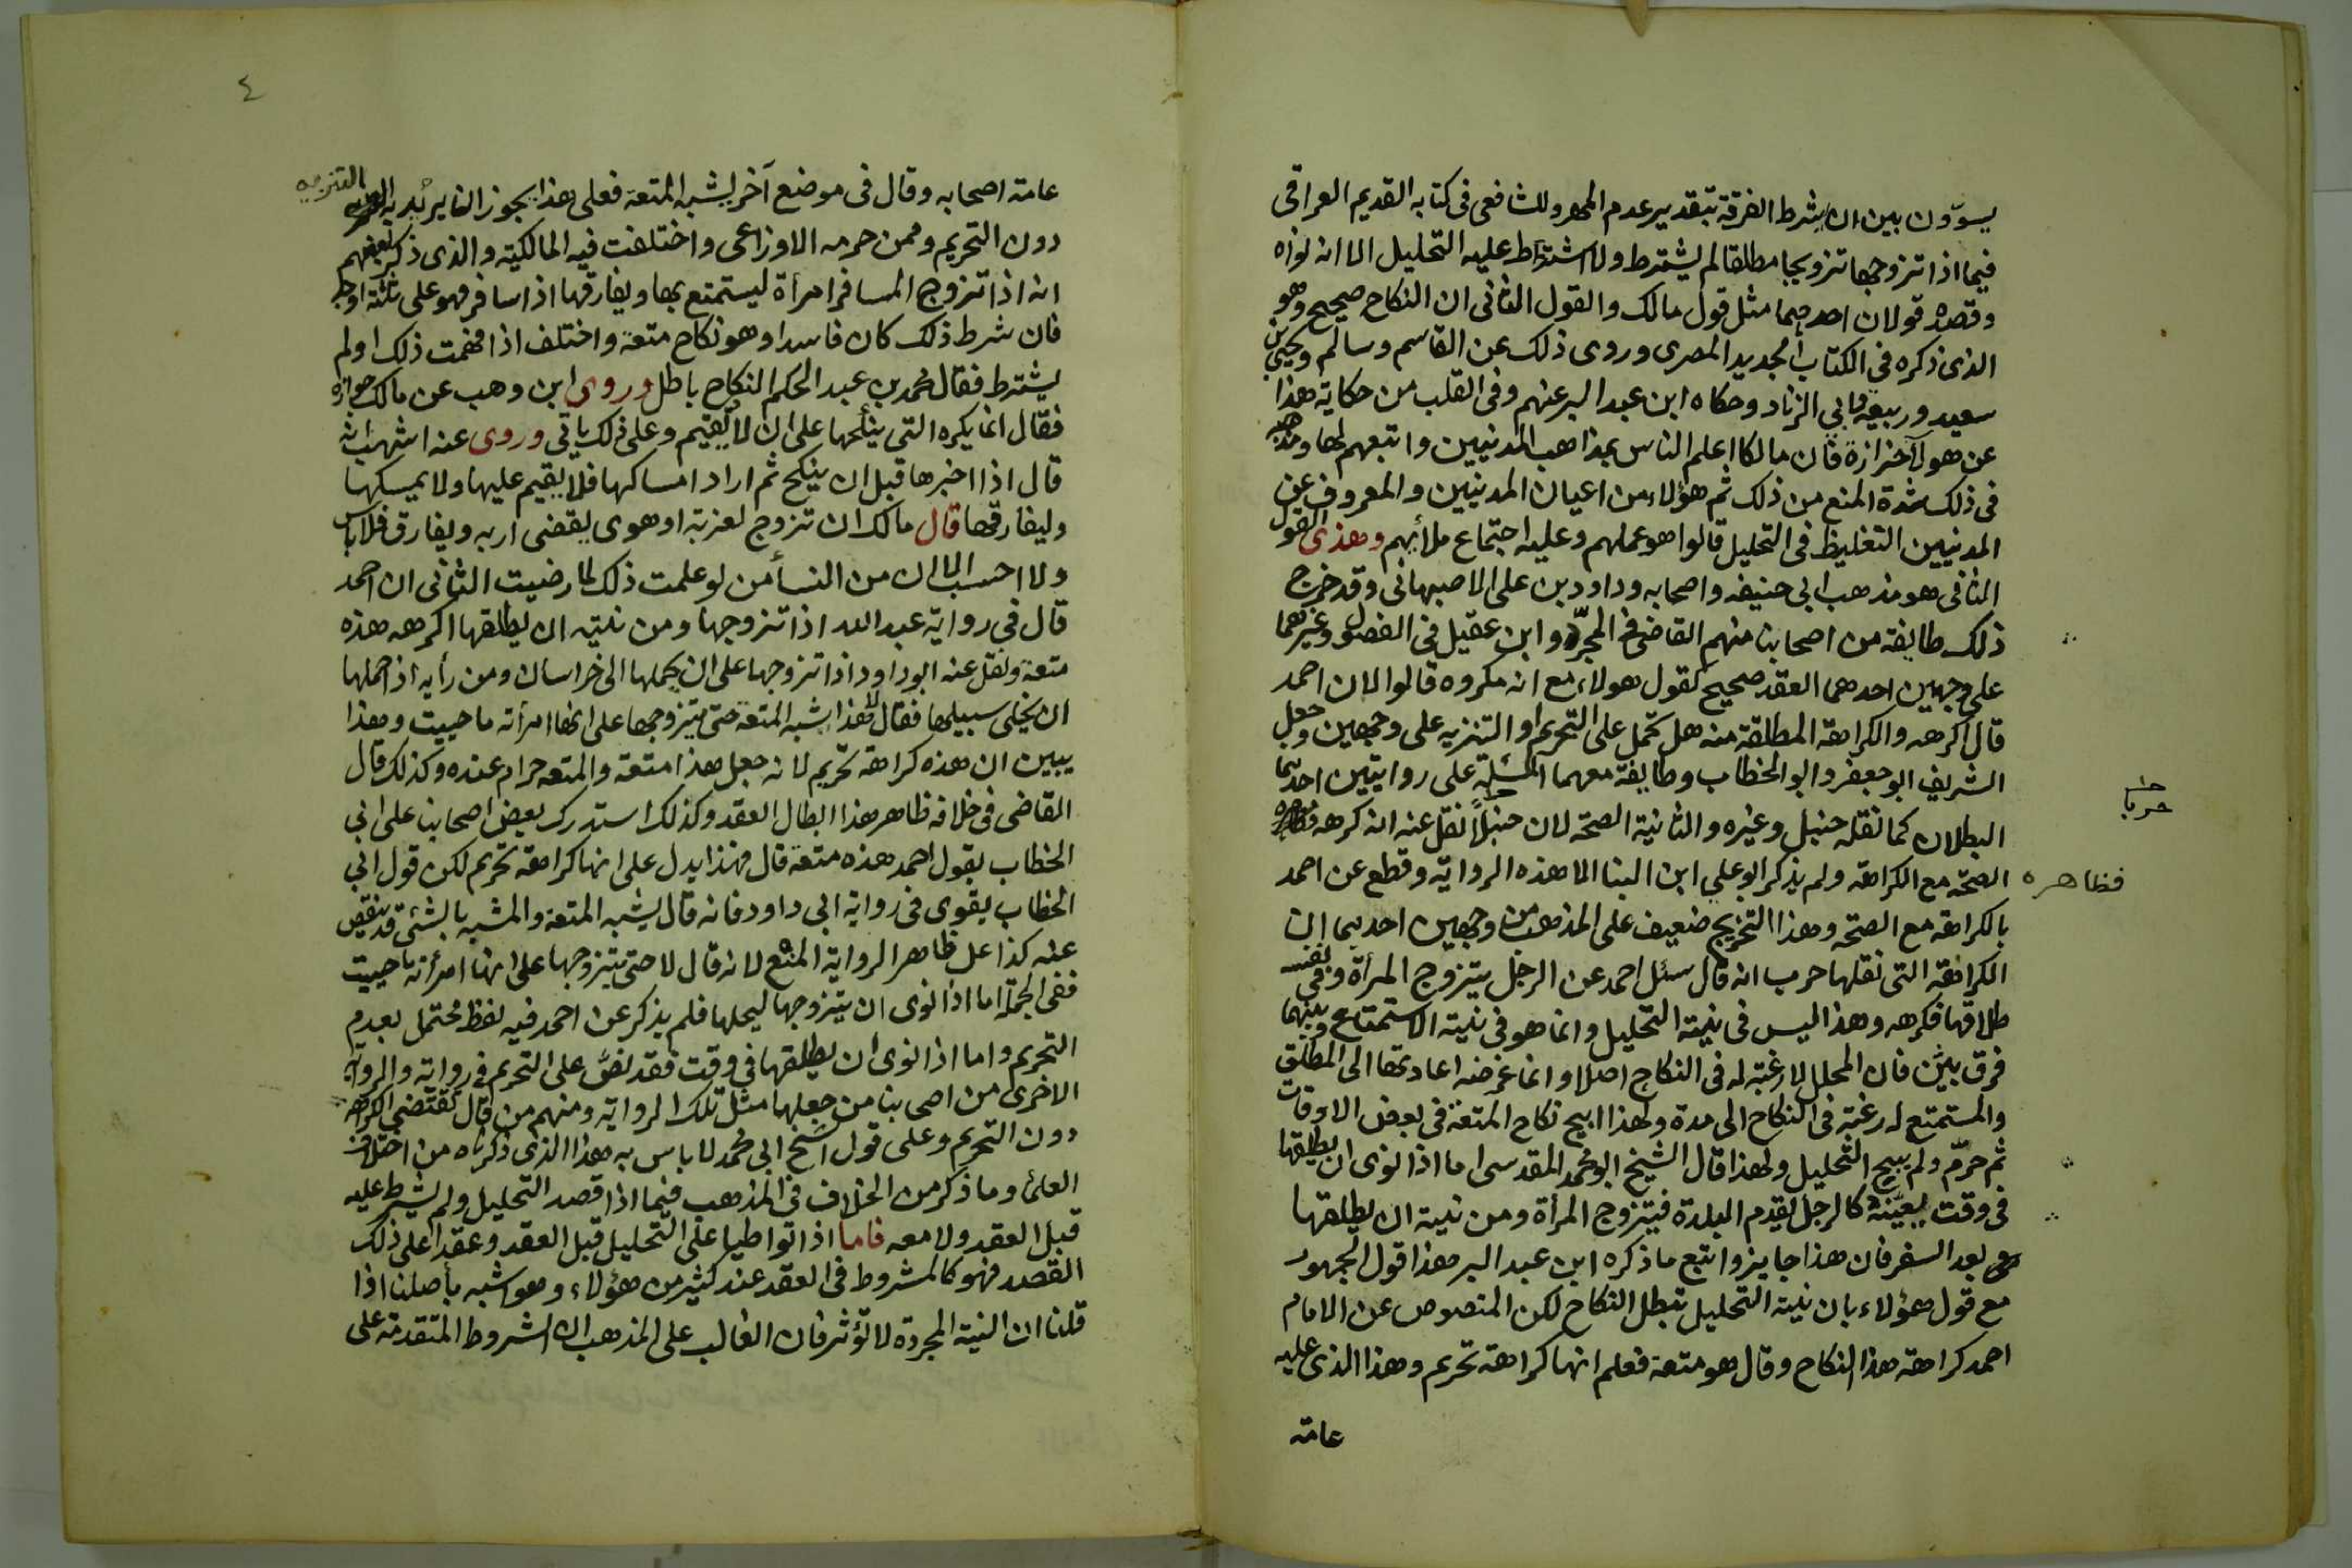 يسوّون بين ان يشرط الفرقة بتقدير عدم المهر وللشافعي فى كتابه القديم العراقى
فيما اذا تزوجها تزويجا مطلقا لم يشترط ولا اشترط عليه التحليل الا انه نواه
وقصده قولان احدهما مثل قول مالك والقول الثانى ان النكاح صحيح وهو
الذى ذكره فى الكتاب الجديد المصرى وروى ذلك عن القاسم وسالم ويحيى بن
سعيد وربيعة وابي الزناد وحكاه ابن عبد البر عنهم وفى القلب من حكاية هذا
عن هولآ حزازة فان مالكا اعلم الناس بمذاهب المدنيين واتبعهم لها ومذهبه
فى ذلك شدة المنع من ذلك ثم هؤلاء من اعيان المدنيين والمعروف عن
المدنيين التغليظ فى التحليل قالوا هو عملهم وعليه اجتماع ملأيهم وهذى القول
الثانى هو مذهب ابى حنيفه واصحابه وداود بن على الاصبهانى وقد خرج
ذلك طايفة من اصحابنا منهم القاضى فى المجرّد وابن عقيل فى الفصول وغيرهما
على وجهين احدهما العقد صحيح كقول هولاء مع انه مكروه قالوا لان احمد
قال اكرهه والكراهة المطلقة منه هل تحمل على التحريم او التنزيه على وجهين وجعل
الشريف ابو جعفر وابو الخطاب وطايفة معهما المسئلة على روايتين احديهما
البطلان كما نقله حنبل وغيره والثانية الصحة لان حنبلاً نقل عنه انه كرهه
حربا
فظاهره
الصحة مع الكراهة ولم يذكر ابو علي ابن البنا الا هذه الرواية وقطع عن احمد
بالكراهة مع الصحة وهذا التخريج ضعيف على المذهب من وجهين احديهما ان
الكراهة التى نقلها حرب انه قال سئل احمد عن الرجل يتزوج المرأة وفى نفسه
طلاقها فكرهه وهذا ليس فى نية التحليل وانما هو فى نية الاستمتاع وبينهما
فرق بيّن فان المحلل لا رغبة له فى النكاح اصلا وانما غرضه اعادتها الى المطلق
والمستمتع له رغبة فى النكاح الى مدة ولهذا ابيح نكاح المتعة فى بعض الاوقات
ثم حرّم ولم يبح التحليل ولهذا قال الشيخ ابو محمد المقدسى اما اذا نوى ان يطلقها
فى وقت بعينه كالرجل يقدم البلدة فيتزوج المرأة ومن نية ان يطلقها
بعد السفر فان هذا جايز واتبع ما ذكره ابن عبد البر هذا قول الجمهور
مع قول هؤلاء بان نية التحليل تبطل النكاح لكن المنصوص عن الامام
احمد كراهة هذا النكاح وقال هو متعة فعلم انها كراهة تحريم وهذا الذى عليه
عامة
٤
عامة اصحابه وقال فى موضع آخر يشبه المتعة فعلى هذا يجوز ان يريد به التنزيه
دون التحريم وممن حرمه الاوزاعى واختلفت فيه المالكية والذى ذكر بعضهم
انه اذا تزوج المسافر امرأة ليستمتع بها ويفارقها اذا سافر فهو على ثلثة اوجه
فان شرط ذلك كان فاسدا وهو نكاح متعة واختلف اذا فهمت ذلك اولم
يشترط فقال محمد بن عبد الحكم النكاح باطل وروى ابن وهب عن مالك جوازه
فقال انما يكره التى ينكحها على ان لا يقيم وعلى ذلك ياتى وروى عنه اشهب انه
قال اذا اخبرها قبل ان ينكح ثم اراد امساكها فلا يقيم عليها ولا يمسكها
وليفارقها قال مالك ان تزوج لعزبة او هوى يقضى اربه ويفارق فلا باس
ولا احسب الا ان من النسأ من لو علمت ذلك لما رضيت الثانى ان احمد
قال فى رواية عبد الله اذا تزوجها ومن نيته ان يطلقها اكرهه هذه
متعة ونقل عنه ابو داود اذا تزوجها على ان يحملها الى خراسان ومن رأيه اذا حملها
ان يخلى سبيلها فقال لا هذا يشبه المتعة حتى يتزوجها على انها امرأته ما حييت وهذا
يبين ان هذه كراهة تحريم لانه جعل هذا متعة والمتعه حرام عنده وكذلك قال
القاضى فى خلافه ظاهر هذا ابطال العقد وكذلك استدرك بعض اصحابنا على ابى
الخطاب بقول احمد هذه متعة قال فهذا يدل على انها كراهة تحريم لكن قول ابى
الخطاب يقوى فى رواية ابى داود فانه قال يشبه المتعة والمشبه بالشئ قد ينقص
عنه كذا على ظاهر الرواية المنع لانه قال لا حتى يتزوجها على انها امرأته ما حييت
ففى الجملة اما اذا نوى ان يتزوجها ليحلها فلم يذكر عن احمد فيه لفظ محتمل بعدم
التحريم واما اذا نوى ان يطلقها فى وقت فقد نصّ على التحريم فى رواية والرواية
الاخرى من اصحابنا من جعلها مثل تلك الرواية ومنهم من قال تقتضى الكراهة
دون التحريم وعلى قول الشيخ ابى محمد لا باس به هذا الذى ذكرناه من اختلاف
العلمأ وما ذكر من الخلاف فى المذهب فيما اذا قصد التحليل ولم يشرط عليه
قبل العقد ولا معه فاما اذا تواطيا على التحليل قبل العقد وعقدا على ذلك
القصد فهو كالمشروط فى العقد عند كثير من هؤلاء وهو اشبه بأصلنا اذا
قلنا ان النية المجردة لا تؤثر فان الغالب على المذهب ان الشروط المتقدمة على